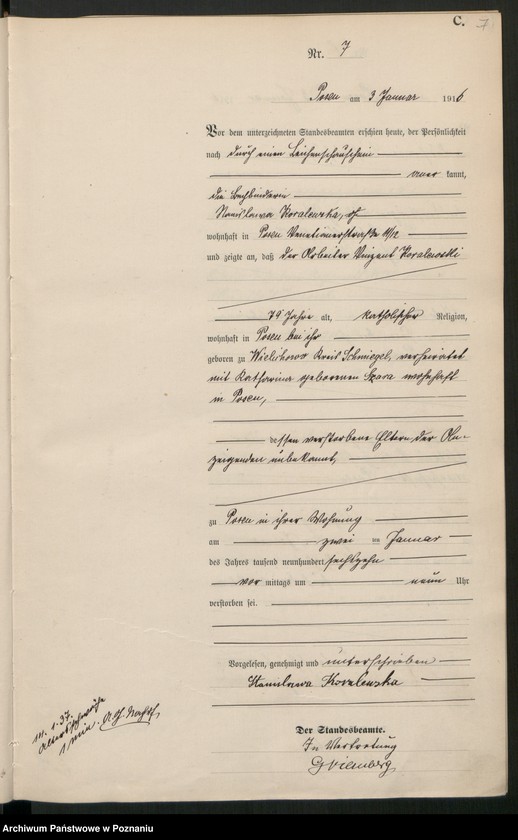 C. 7
Nr. 7
Posen am 3 Januar 1916
Vor dem unterzeichneten Standesbeamten erschien heute, der Persönlichkeit
nach durch einen Leichenschauschein
aner kannt,
die Buchbinderin
Stanislawa Koralewska,
wohnhaft in Posen Venetianerstraße 11/12
und zeigte an, daß der Arbeiter Vinzent Koralewski
79 Jahre alt, katholischer Religion,
wohnhaft in Posen bei ihr
geboren zu Wielichowo Kreis Schmiegel, verheiratet
mit Katharina geborenen Szara wohnhaft
in Posen,
dessen verstorbene Eltern der An-
zeigenden unbekannt,
zu Posen in ihrer Wohnung
am zwei ten Januar
des Jahres tausend neunhundert sechszehn
vor mittags um neun Uhr
verstorben sei.
Vorgelesen, genehmigt und unterschrieben
Stanisława Koralewska
Der Standesbeamte.
In Vertretung
m. 1. 37.
Altersschwäche
Archiwum Państwowe w Poznaniu